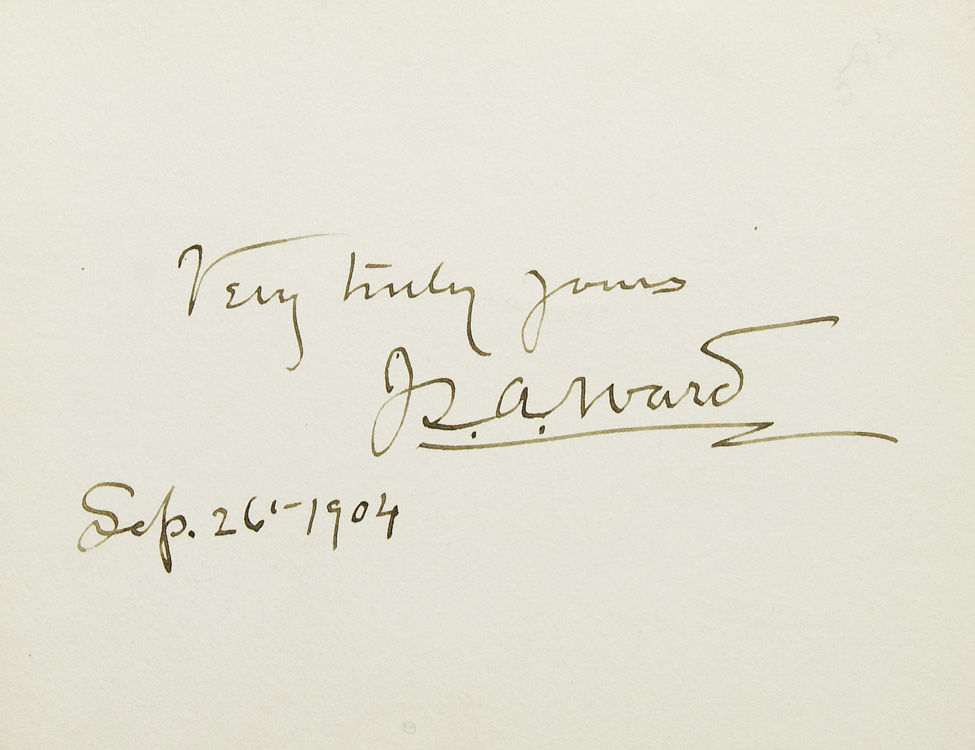 Very truly yours
J.Q.A. Ward
Sep. 26'-1904